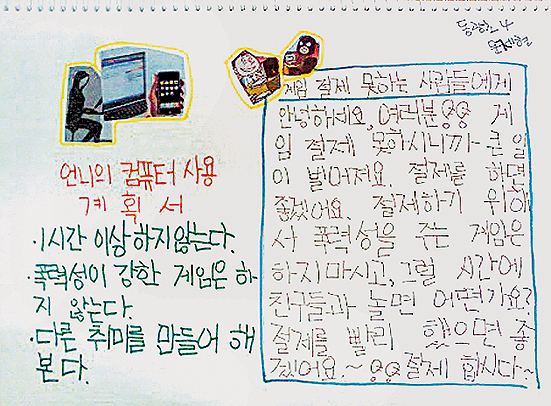 언니의 컴퓨터 사용
계획서
·1시간 이상하지않는다.
·폭력성이 강한 게임은 하
지 않는다.
·다른 취미를 만들어 해
본다.
게임 절제 못하는 사람들에게
안녕하세요, 여러분 게
임 절제 못하시니까 큰일
이 벌어져요. 절제를 하면
좋겠어요. 절제하기 위해
서 폭력성을 주는 게임은
하지마시고, 그럴 시간에
친구들과 놀면 어떤가요?
절제를 빨리 했으면 좋
겠어요.~ 절제 합시다~